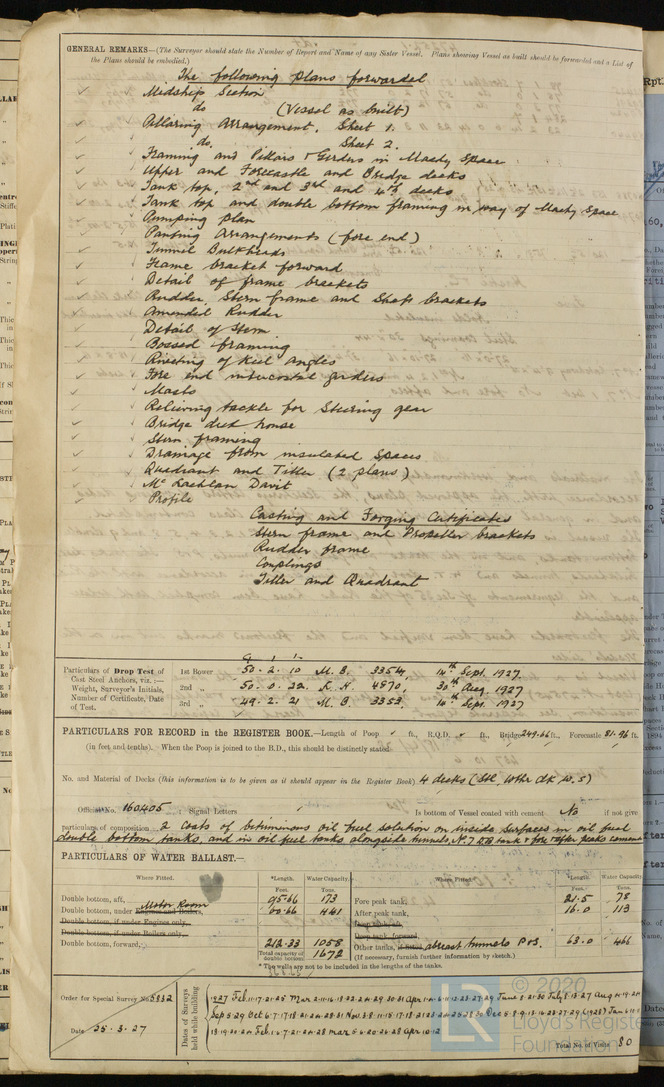 GENERAL REMARKS—(The Surveyor should state the Number of Report and Name of any Sister Vessel. Plans shewing Vessel as built should be forwarded and a List of
the Plans should be embodied.)
The following plans forwarded
Midship Section
do (Vessel as built)
Pillaring Arrangement, Sheet 1.
do. Sheet 2.
Framing and Pillars & Girders in Machy Space
Upper and Forecastle and Bridge decks
Tank top, 2nd and 3rd and 4th decks
Tank top and double bottom framing in way of Machy Space
Pumping plan
Panting Arrangements (fore end)
Tunnel Bulkheads
Frame bracket forward
Detail of frame brackets
Rudder, Stern frame and Shaft brackets
Amended Rudder
Detail of Stem
Bossed framing
Riveting of Keel Angles
Fore end intercostal girders
Masts
Relieving tackle for Steering gear
Bridge deck house
Stern framing
Drainage from insulated Spaces
Quadrant and Tiller (2 plans)
Mc Lachlan Davit
Profile
Casting and Forging Certificates
Stern frame and Propeller brackets
Rudder frame
Couplings
Tiller and Quadrant
Particulars of Drop Test of
Cast Steel Anchors, viz.:—
Weight, Surveyor's Initials,
Number of Certificate, Date
of Test.
1st Bower 50.2.10 M.B. 3354, 14th Sept. 1927.
2nd „ 50.0.22. K.H. 4570, 30th Aug. 1927
3rd „ 49.2.21 M.B. 3353, 14th Sept. 1927
PARTICULARS FOR RECORD in the REGISTER BOOK.—Length of Poop ft., R.Q.D. ft., Bridge 249.66 ft., Forecastle 81.96 ft.
(in feet and tenths). When the Poop is joined to the B.D., this should be distinctly stated
No. and Material of Decks (this information is to be given as it should appear in the Register Book) 4 decks (Stl, Wthr dk w.s)
Official No. 160405 : Signal Letters Is bottom of Vessel coated with cement No if not give
particulars of composition 2 coats of bituminous oil fuel solution on inside surfaces in oil fuel
double bottom tanks, and in oil fuel tanks alongside tunnels, No. 7 D.B tank & fore & after peaks cement
PARTICULARS OF WATER BALLAST.—
Where Fitted. *Length. Water Capacity. Where Fitted. *Length. Water Capacity
Feet. Tons. Feet. Tons.
Double bottom, aft, 95.66 173 Fore peak tank, 21.5 78
Double bottom, under Motor Room Engines and Boilers, 441 After peak tank, 16.0 113
Double bottom, if under Engines only,
Double bottom, if under Boilers only, Deep tank forward,
Double bottom, forward, 212.33 1058 Other tanks, if fitted abreast tunnels P & S. 63.0 466
Total capacity of double bottom 1672 (If necessary, furnish further information by sketch.)
* The wells are not to be included in the lengths of the tanks.
Order for Special Survey No. 5832
Date 25.3.27
Dates of Surveys held while building
Total No. of Visits 80
© 2020
LR
Lloyd's Register
Foundation